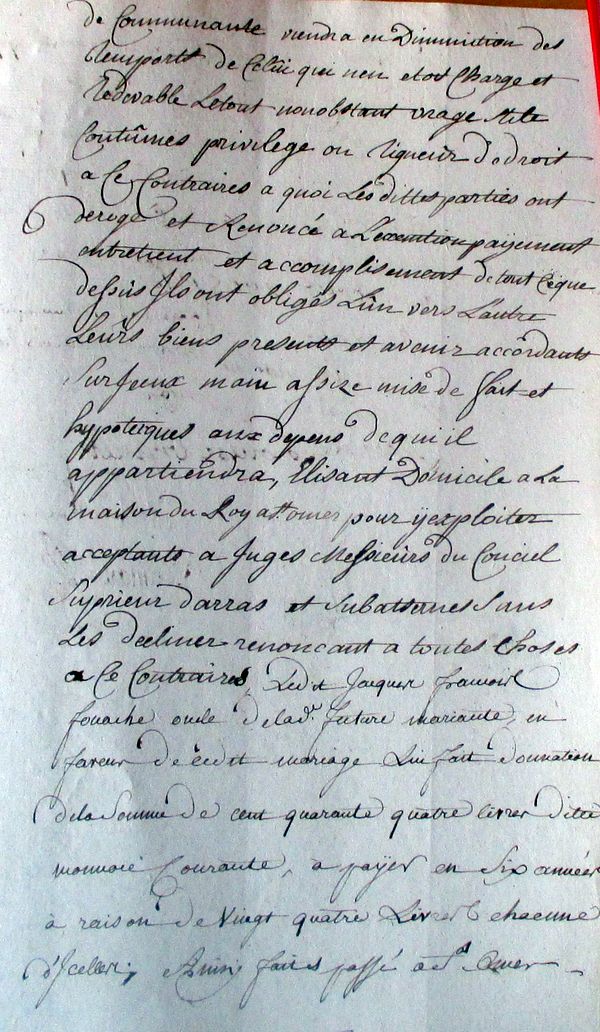 de Communauté viendra en Diminution des
Remports de Celui qui nen etoit Chargé et
Redevable Letout nonobstant usage stile
Coutûmes privilege ou Rigueur de droit
a Ce Contraires a quoi Les dittes parties ont
derogé et Renoncé a L'execution payement
entretient et accomplisement de tout Ceque
dessus Ils ont obligés L'un vers L'autre
Leurs biens presents et avenir accordants
Sur Iceux main assize mise de fait et
hypoteiques aux depens de qu'il
appartiendra, Elisant Domicile a La
maison du Roy a St omer pour ÿ exploiter
acceptants a Juges Messieurs du Conciel
Suprieur darras et Subalternes Sans
Les decliner renoncant a toutes Choses
a Ce Contraires Ledit Jacques francois
fouache oncle de lad.e future mariante, en
faveur de cedit mariage Lui fait donnation
dela Somme de cent quarante quatre livres ditte
monnoie Courante, a payer en Six années
à raison de Vingt quatre Livres chacune
d'Icelles; Ainsi fait et passé a St Omer